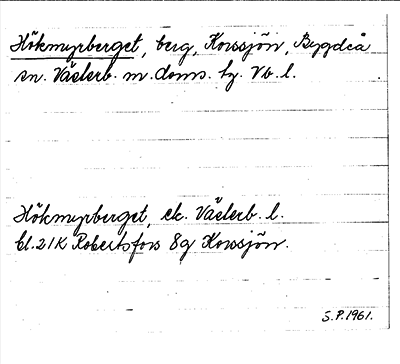 Hökmyrberget, berg, Korssjön, Bygdeå
sn. Västerb. m. doms. hg. Vb. l.
Hökmyrberget, ek. Västerb. l.
bl. 21K Robertsfors 8g Korssjön.
S.P. 1961.